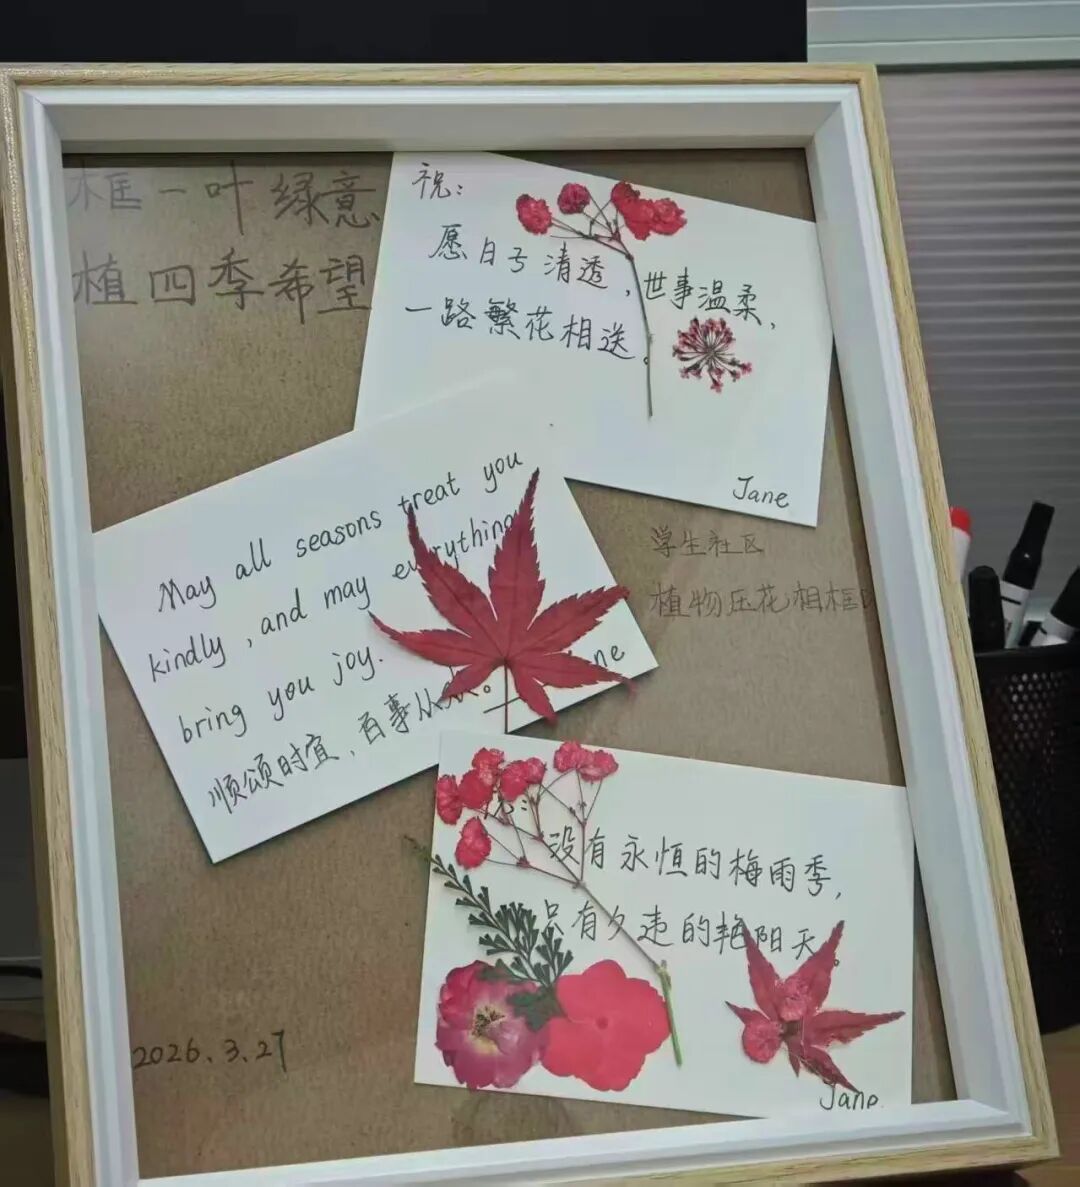 框一叶绿意
植四季希望
祝:
愿日兮清透,世事温柔,
一路繁花相送。
Jane
May all seasons treat you
kindly, and may everything
bring you joy.
顺颂时宜,百事从欢。
学生社区
植物压花相框
没有永恒的梅雨季,
只有久违的艳阳天。
Jane
2026.3.27